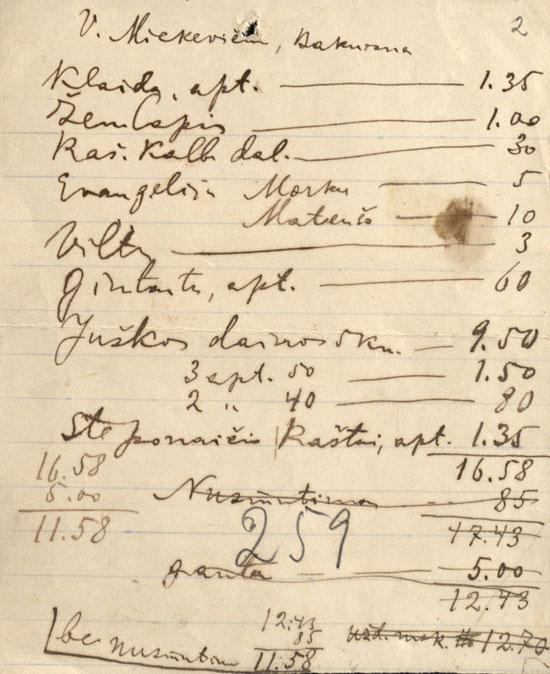 2
V. Mickevičiui,
Klaida, apt. — 1.35
Žemlapis — 1.00
Raš. Kalb dal. — 30
Evangelija Morkus — 5
Mateušo — 10
Viltis — 3
Gintaitu, apt. — 60
Juškos dainos 5 kn. — 9.50
3 apt. 50 — 1.50
2 " 40 — 80
Steponaičio Raštai, apt. 1.35
16.58 16.58
5.00 Nusiuntimas — 85
11.58 17.43
259
gauta — 5.00
12.43
12.43
85 12.70
be nusiuntimo 11.58